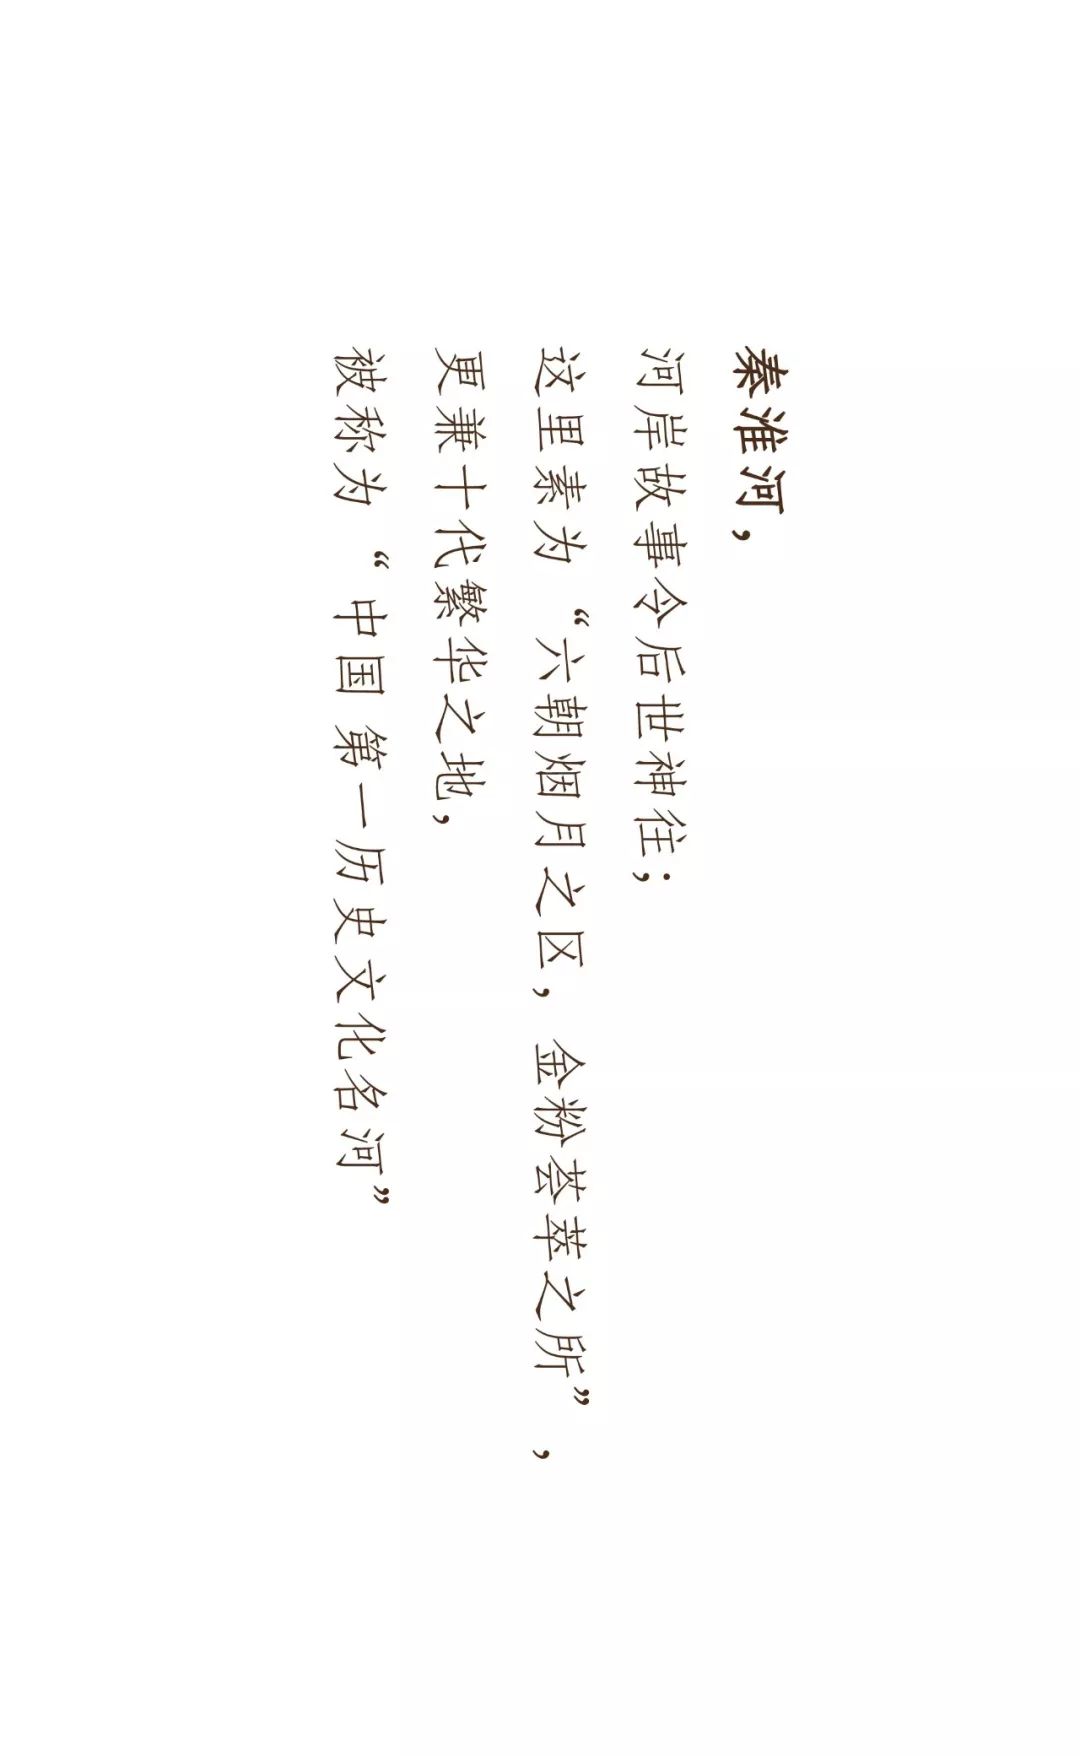 秦淮河，
河岸故事令后世神往；
这里素为“六朝烟月之区，金粉荟萃之所”，
更兼十代繁华之地，
被称为“中国第一历史文化名河”